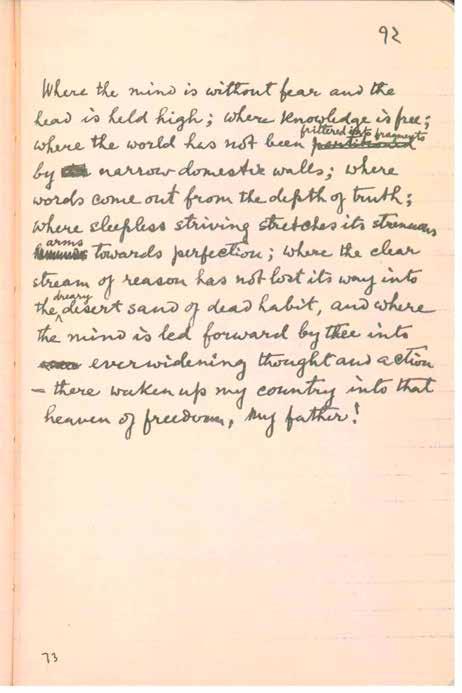 92
Where the mind is without fear and the
head is held high; where knowledge is free;
frittered into fragments
where the world has not been partitioned
by narrow domestic walls; where
words come out from the depth of truth;
where sleepless striving stretches its strenuous
arms
towards perfection; where the clear
stream of reason has not lost its way into
dreary
the desert sand of dead habit, and where
the mind is led forward by thee into
ever widening thought and action
– there waken up my country into that
heaven of freedom, my father!
73